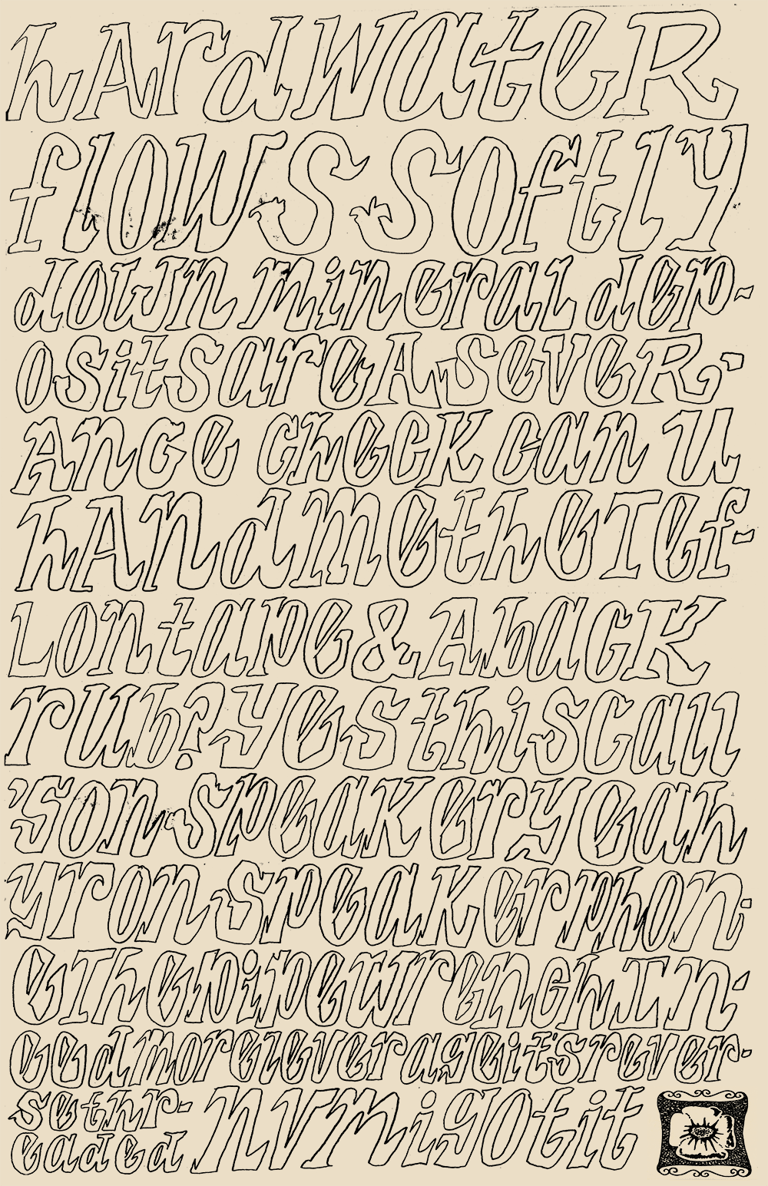 hArdwateR
flowS Softly
down mineral dep-
ositsareAseveR-
Ance check can u
hAndmetheTef-
Lontape&AbacK
rub?Yesthiscall
'sonspeakeryeah
yronspeakerphon-
eThepipewrenchIn-
eedmoreleverageit'srever-
sethr-
eaded nVMigotit